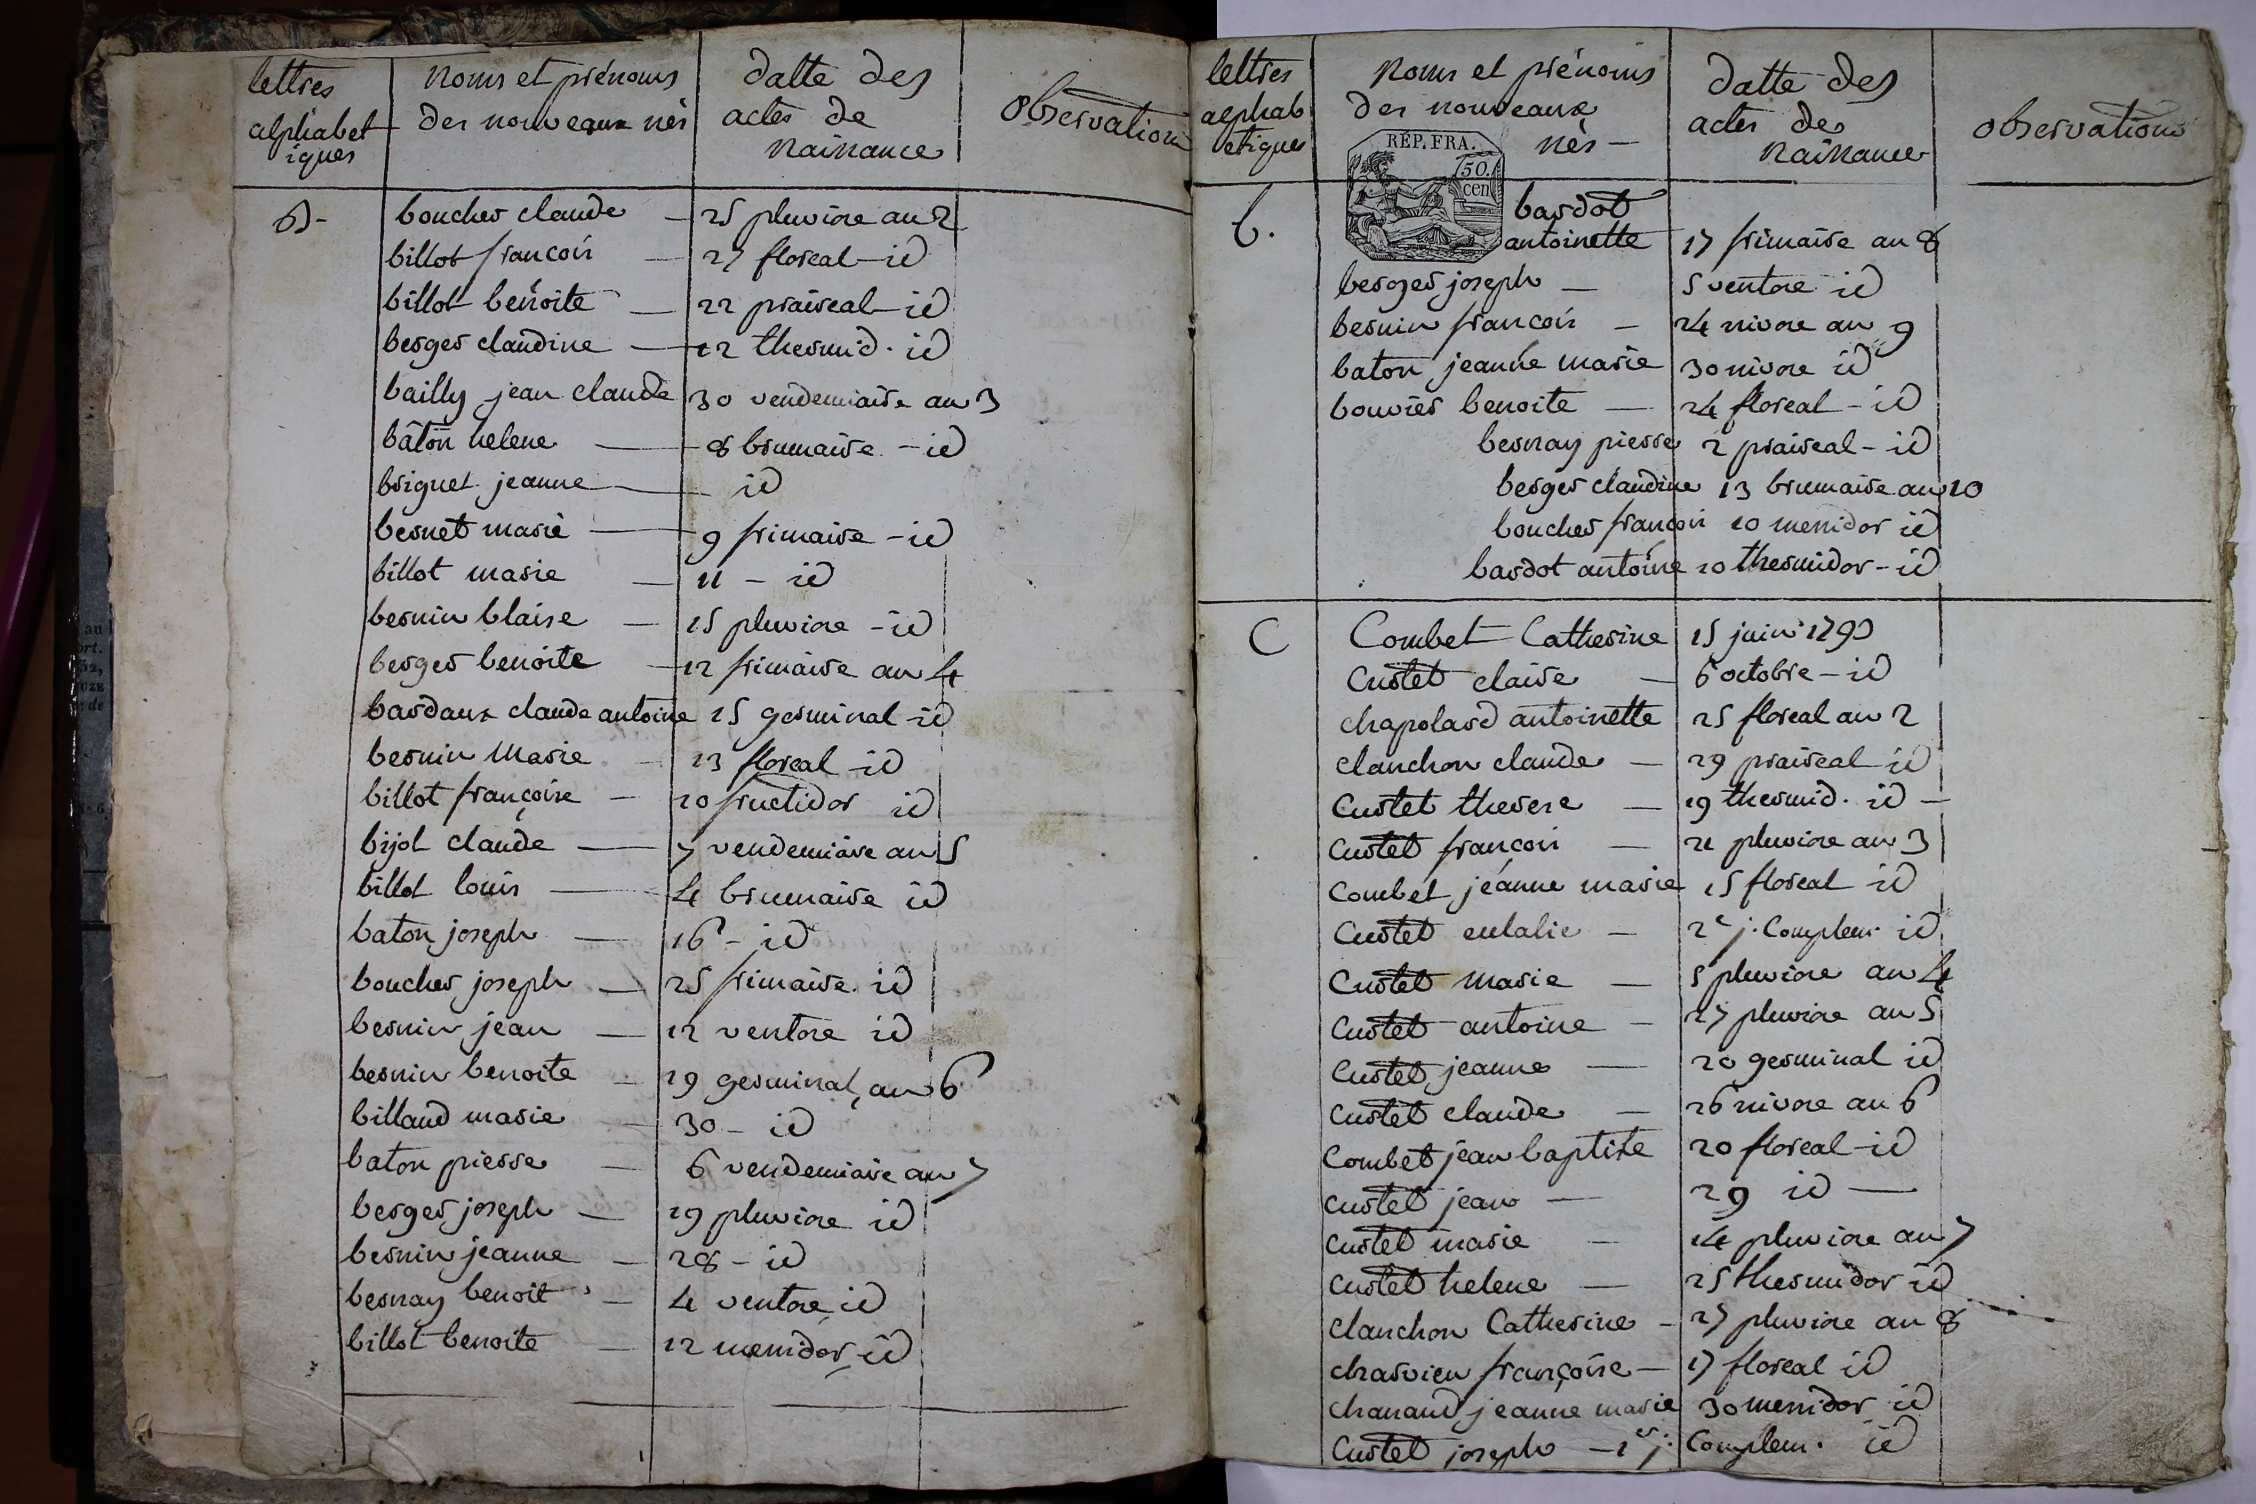 lettres
alphabet
iques
noms et prénoms
des nouveaux nés
datte des
actes de
naissance
observation
b -
boucher claude - 25 pluviose an 2
billot francois - 27 floreal - id
billot benoite - 22 praireal - id
berger claudine - 12 thermid. id
bailly jean claude 30 vendemiaire an 3
bâton helene - 8 brumaire - id
briguet jeanne - id
bernet marie - 9 frimaire - id
billot marie - 11 - id
bernin blaise - 15 pluviose - id
berger benoite - 12 frimaire an 4
bardaux claude antoine 15 germinal - id
bernin Marie - 13 floreal - id
billot françoise - 10 fructidor id
bijot claude - 7 vendemiaire an 5
billot louis - 4 brumaire id
baton joseph - 16 - id
boucher joseph - 25 frimaire id
bernin jean - 12 ventose id
bernin benoite - 19 germinal an 6
billaud marie - 30 - id
baton pierre - 6 vendemiaire an 7
berger joseph - 19 pluviose id
bernin jeanne - 28 - id
bernay benoit - 4 ventose id
billot benoite - 12 messidor id
lettres
alphab
etiques
noms et prénoms
des nouveaux
nés -
datte des
actes de
naissance
observations
RÉP. FRA.
50.
cen
b.
bardot
antoinette 17 frimaire an 8
berger joseph - 5 ventose id
bernin francois - 24 nivose an 9
baton jeanne marie 30 nivose id
bouvier benoite - 24 floreal - id
bernay pierre 2 praireal - id
berger claudine 13 brumaire an 10
boucher francois 10 messidor id
bardot antoine 10 thermidor - id
C
Combet Catherine 15 juin 1793
Custet claire - 6 octobre - id
chapolard antoinette 25 floreal an 2
clanchon claude - 29 praireal id
Custet therese - 19 thermid. id -
Custet francois - 21 pluviose an 3
Combet jeanne marie 15 floreal id
Custet eulalie - 2e j. Complem. id
Custet Marie - 5 pluviose an 4
Custet antoine - 27 pluviose an 5
Custet jeanne - 20 germinal id
Custet claude - 26 nivose an 6
Combet jean baptiste 20 floreal - id
custet jean - 29 id -
Custet marie - 14 pluviose an 7
Custet helene - 25 thermidor id
Clanchon Catherine - 27 pluviose an 8
charvieu françoise - 17 floreal id
chanaud jeanne marie 30 messidor id
Custet joseph - 1er j. Complem. id